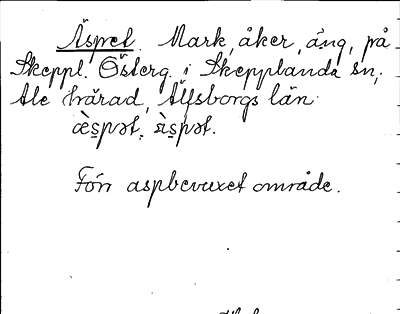 Äspet. Mark, åker, äng, på
Skeppl. Österg. i Skepplanda sn,
Ale härad, Älfsborgs län.
æ̀s̱pət, às̱pət.
Förr aspbevuxet område.